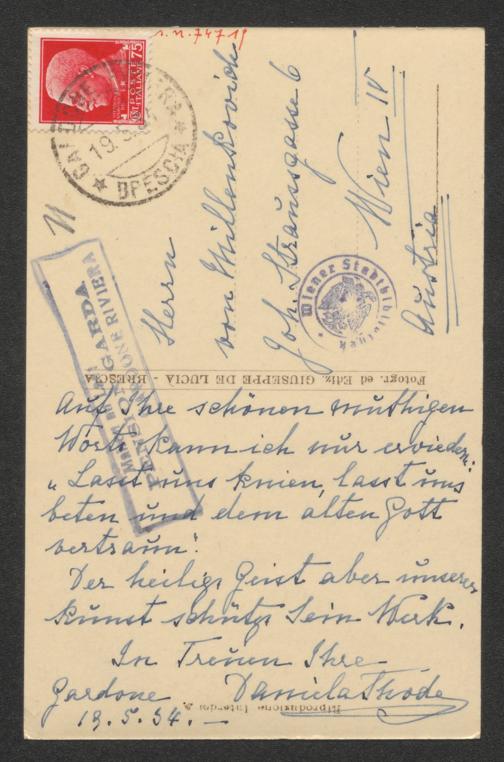 I.N. 74719
POSTE ITALIANE 75
19.5.34
BRESCIA
Herrn
von Millenkovich
Joh. Straussgasse 6
Wien IV
Austria
Wiener Stadtbibliothek
Fotogr. ed Ediz. GIUSEPPE DE LUCIA - BRESCIA
PENSION GARDA
GARDONE RIVIERA
Auf Ihre schönen muthigen
Worte kann ich nur erwiedern:
„Lasst uns knien, lasst uns
beten und dem alten Gott
vertraun".
Der heilige Geist aber unserer
Kunst schütze Sein Werk.
In Treuen Ihre
Daniela Thode
Gardone
19.5.34.-
Riproduzione Interdetta